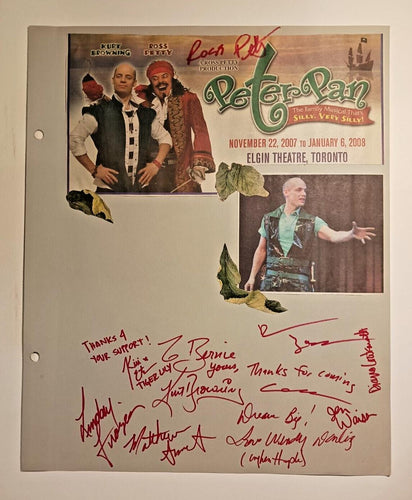 KURT
BROWNING
ROSS
PETTY
Ross Petty
A ROSS PETTY
PRODUCTION
Peter Pan
The Family Musical That's
SILLY, VERY SILLY!
NOVEMBER 22, 2007 TO JANUARY 6, 2008
ELGIN THEATRE, TORONTO
THANKS 4
YOUR SUPPORT!
TIGER LILY
To Bernie
Yours,
Kurt Browning
Thanks for coming
Lindsay Frazier
Matthew
Dream Big!
Love Wendy Darling
Jen